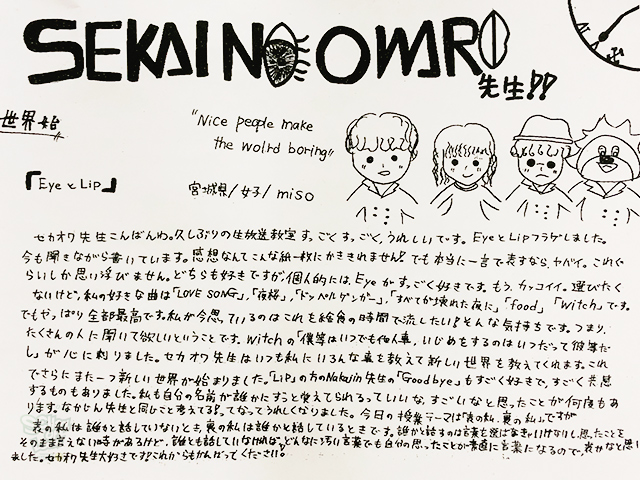 SEKAI NO OWARI
先生!!
世界始
"Nice people make
the wolrd boring"
『Eye と Lip』
宮城県/女子/miso
セカオワ先生こんばんわ。久しぶりの生放送教室す。ごくす。ごく、うれしいです。EyeとLipフラゲしました。
今も聞きながら書いています。感想なんてこんな紙一枚にかききれません!でも本当に一言で表すなら、ヤバイ。これぐ
らいしか思い浮びません。どちらも好きですが、個人的には、Eyeがす。ごく好きです。もう、カッコイイ。選びたく
ないけど、私の好きな曲は「LOVE SONG」,「夜桜」,「ドッペルゲンガー」,「すべてが壊れた夜に」「food」「Witch」です。
でもやっぱり全部最高です。私が今思っているのはこれを給食の時間で流したい!そんな気持ちです。つまり、
たくさんの人に聞いて欲しいということです。Witchの「僕等はいつでも他人事、いじめをするのはいつだって彼等だ
し」が心に刺りました。セカオワ先生はいつも私にいろんな事を教えて新しい世界を教えてくれます。これ
でさらにまた一つ新しい世界が始まりました。「Lip」の方のNakajin先生の「Goodbye」もすごく好きで、すごく共感
するものもありました。私も自分の名前が誰かにずっと覚えてられるっていいな、すごいなと思ったことが何度もあ
ります。なかじん先生と同じこと考えてる!?ってなってうれしくなりました。今日の授業テーマは「表の私、裏の私」ですが
表の私は誰かと話していないとき、裏の私は誰かと話しているときです。誰かと話すのは言葉を選ばなきゃいけないし、思ったことを
そのまま言えない時があるけど、誰とも話していなければ、どんなに汚い言葉でも自分の思ったことが素直に言葉になるので、表かなと思い
ました。セカオワ先生大好きです!これからもがんばってください!